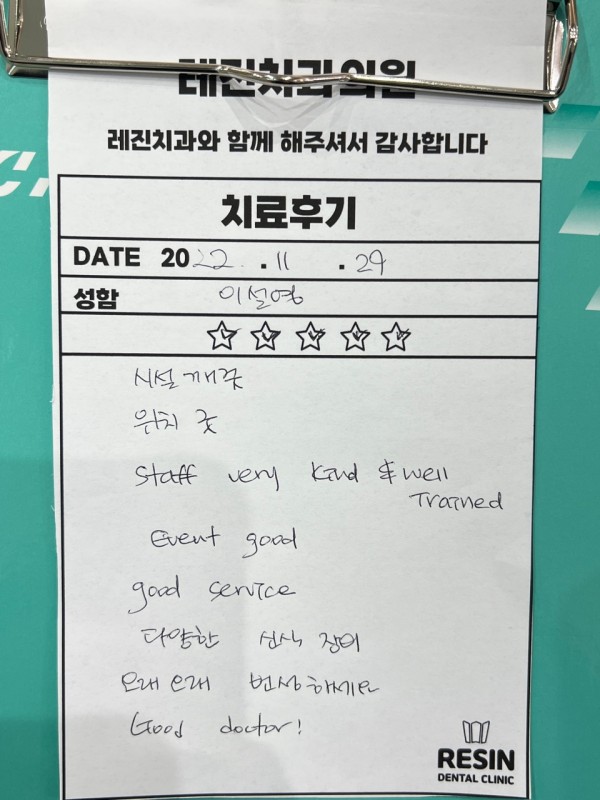 레진치과의원
레진치과와 함께 해주셔서 감사합니다
치료후기
DATE 2022.11.29
성함 이설영
시설 깨굿
위치 굿
Staff very kind & well
Trained
Event good
good service
다양한 신식 장비
오래오래 번성하세요
Good doctor!
RESIN
DENTAL CLINIC